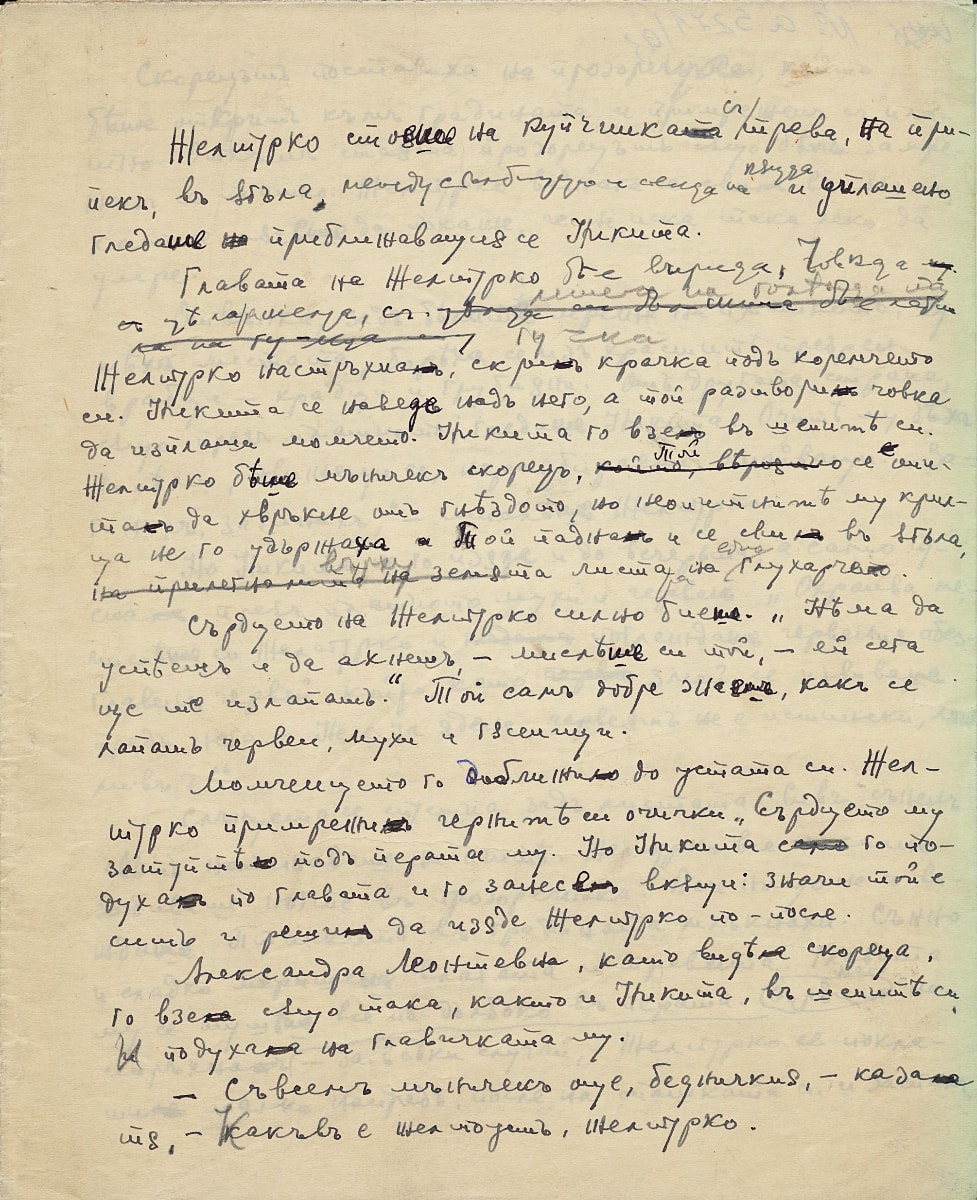 Желтурко стоеше на купчинката съ трева, на при-
пекъ, въ ѫгъла, между стълбището и сенда на къщата и уплашено
гледаше приближаващия се Никита.
Главата на Желтурко бѣе вирнѫта, Човката
Желтурко настръхна, скри крачка подъ коремчето
си. Никита се наведе надъ него, а той разтвори човка
да изплаши момчето. Никита го взе въ шепитѣ си.
Желтурко бѣше мъничекъ скорецъ, Той се е опи-
талъ да хврѫкне отъ гнѣздото, но неопитнитѣ му крил-
ца не го удържаха и Той падна и се сви въ ѫгъла,
на земята листата на едно глухарче.
Сърдцето на Желтурко силно биеше. „Нѣма да
успѣешъ и да ахнешъ, – мислѣше си той, – ей сега
ще те излапатъ.“ Той самъ добре знаеше, какъ се
лапатъ червеи, мухи и гѫсеници.
Момченцето го доближи до устата си. Жел-
турко примрежи чернитѣ си очички. Сърдцето му
затуптѣ подъ перата му. Но Никита само го по-
духа по главата и го занесе вкѫщи: значи той е
ситъ и реши да изяде Желтурко по-после.
Александра Леонтевна, като видѣ скореца,
го взе също така, както и Никита, въ шепитѣ си
и подуха на главичката му.
– Съвсемъ мъничекъ още, бедничкия, – каза
тя, – Какъвъ е желтоустъ, Желтурко.